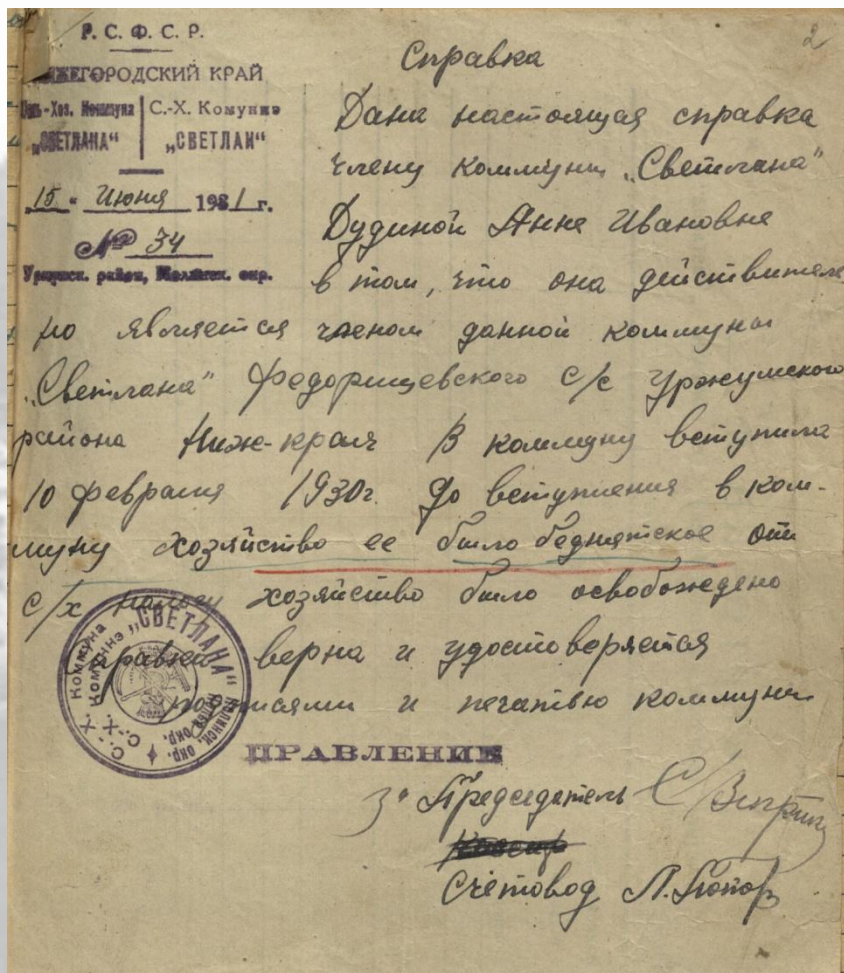 2
Р. С. Ф. С. Р.
НИЖЕГОРОДСКИЙ КРАЙ
Сель-Хоз. Коммуна
„СВЕТЛАНА“
С.-Х. Комуние
„СВЕТЛАН“
„15“ Июня 1931 г.
№ 34
Уржумск. район, окр.
Справка
Дана настоящая справка
члену коммуны „Светлана“
Дудиной Анне Ивановне
в том, что она действитель
но является членом данной коммуны
„Светлана“ Федорищевского с/с Уржумского
района Ниж-края В коммуну вступила
10 февраля 1930г. До вступления в ком-
муну хозяйство ее было бедняцкое от
с/х налога хозяйство было освобождено
Справка верна и удостоверяется
подписями и печатью коммуны
С.-Х. Коммуна
С.-Х. Коммнэ
„СВЕТЛАНА“
окр.
ПРАВЛЕНИЕ
За Председатель
Счетовод Л. Попов